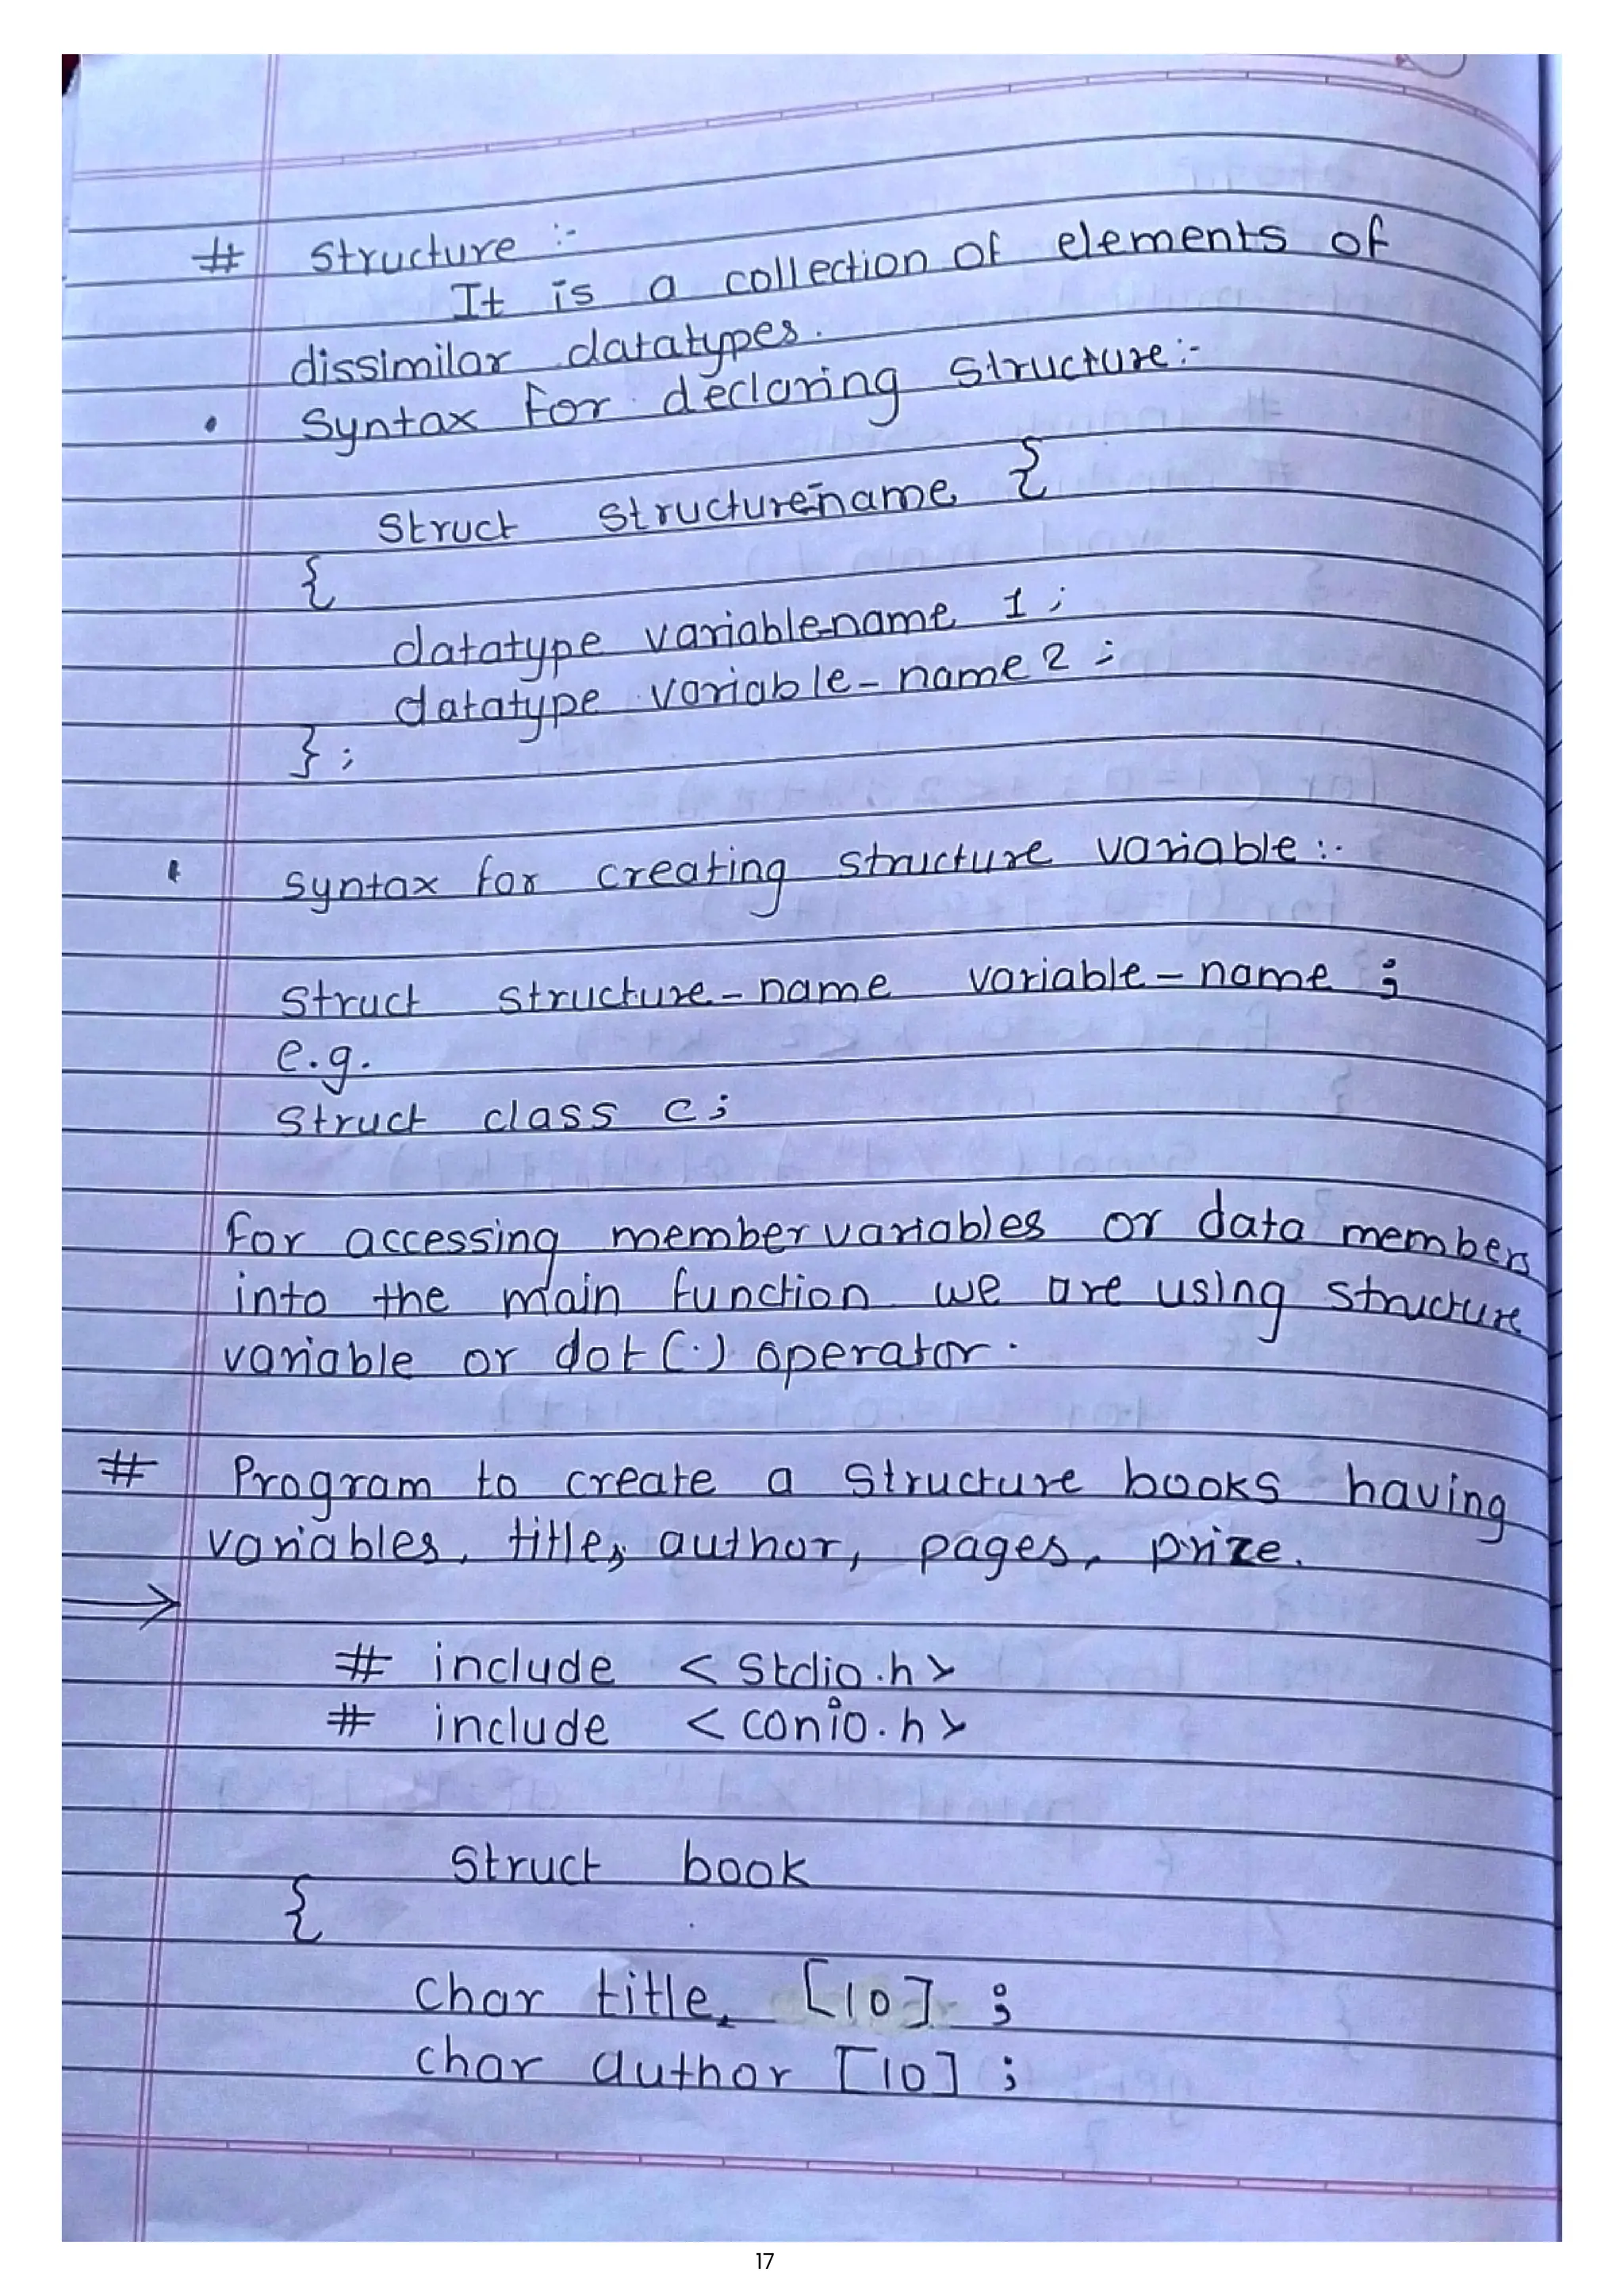 # Structure :-
It is a collection of elements of
dissimilar datatypes.
• Syntax for declaring structure:-
Struct structure-name {
{
datatype variable-name 1 ;
datatype variable-name 2 ;
} ;
• Syntax for creating structure variable :-
Struct structure-name variable-name ;
e.g.
Struct class c ;
For accessing member variables or data members
into the main function we are using structure
variable or dot (.) operator.
# Program to create a structure books having
variables, title, author, pages, prize.
→
# include < Stdio.h >
# include < conio.h >
Struct book
{
Char title, [10] ;
char author [10] ;
17